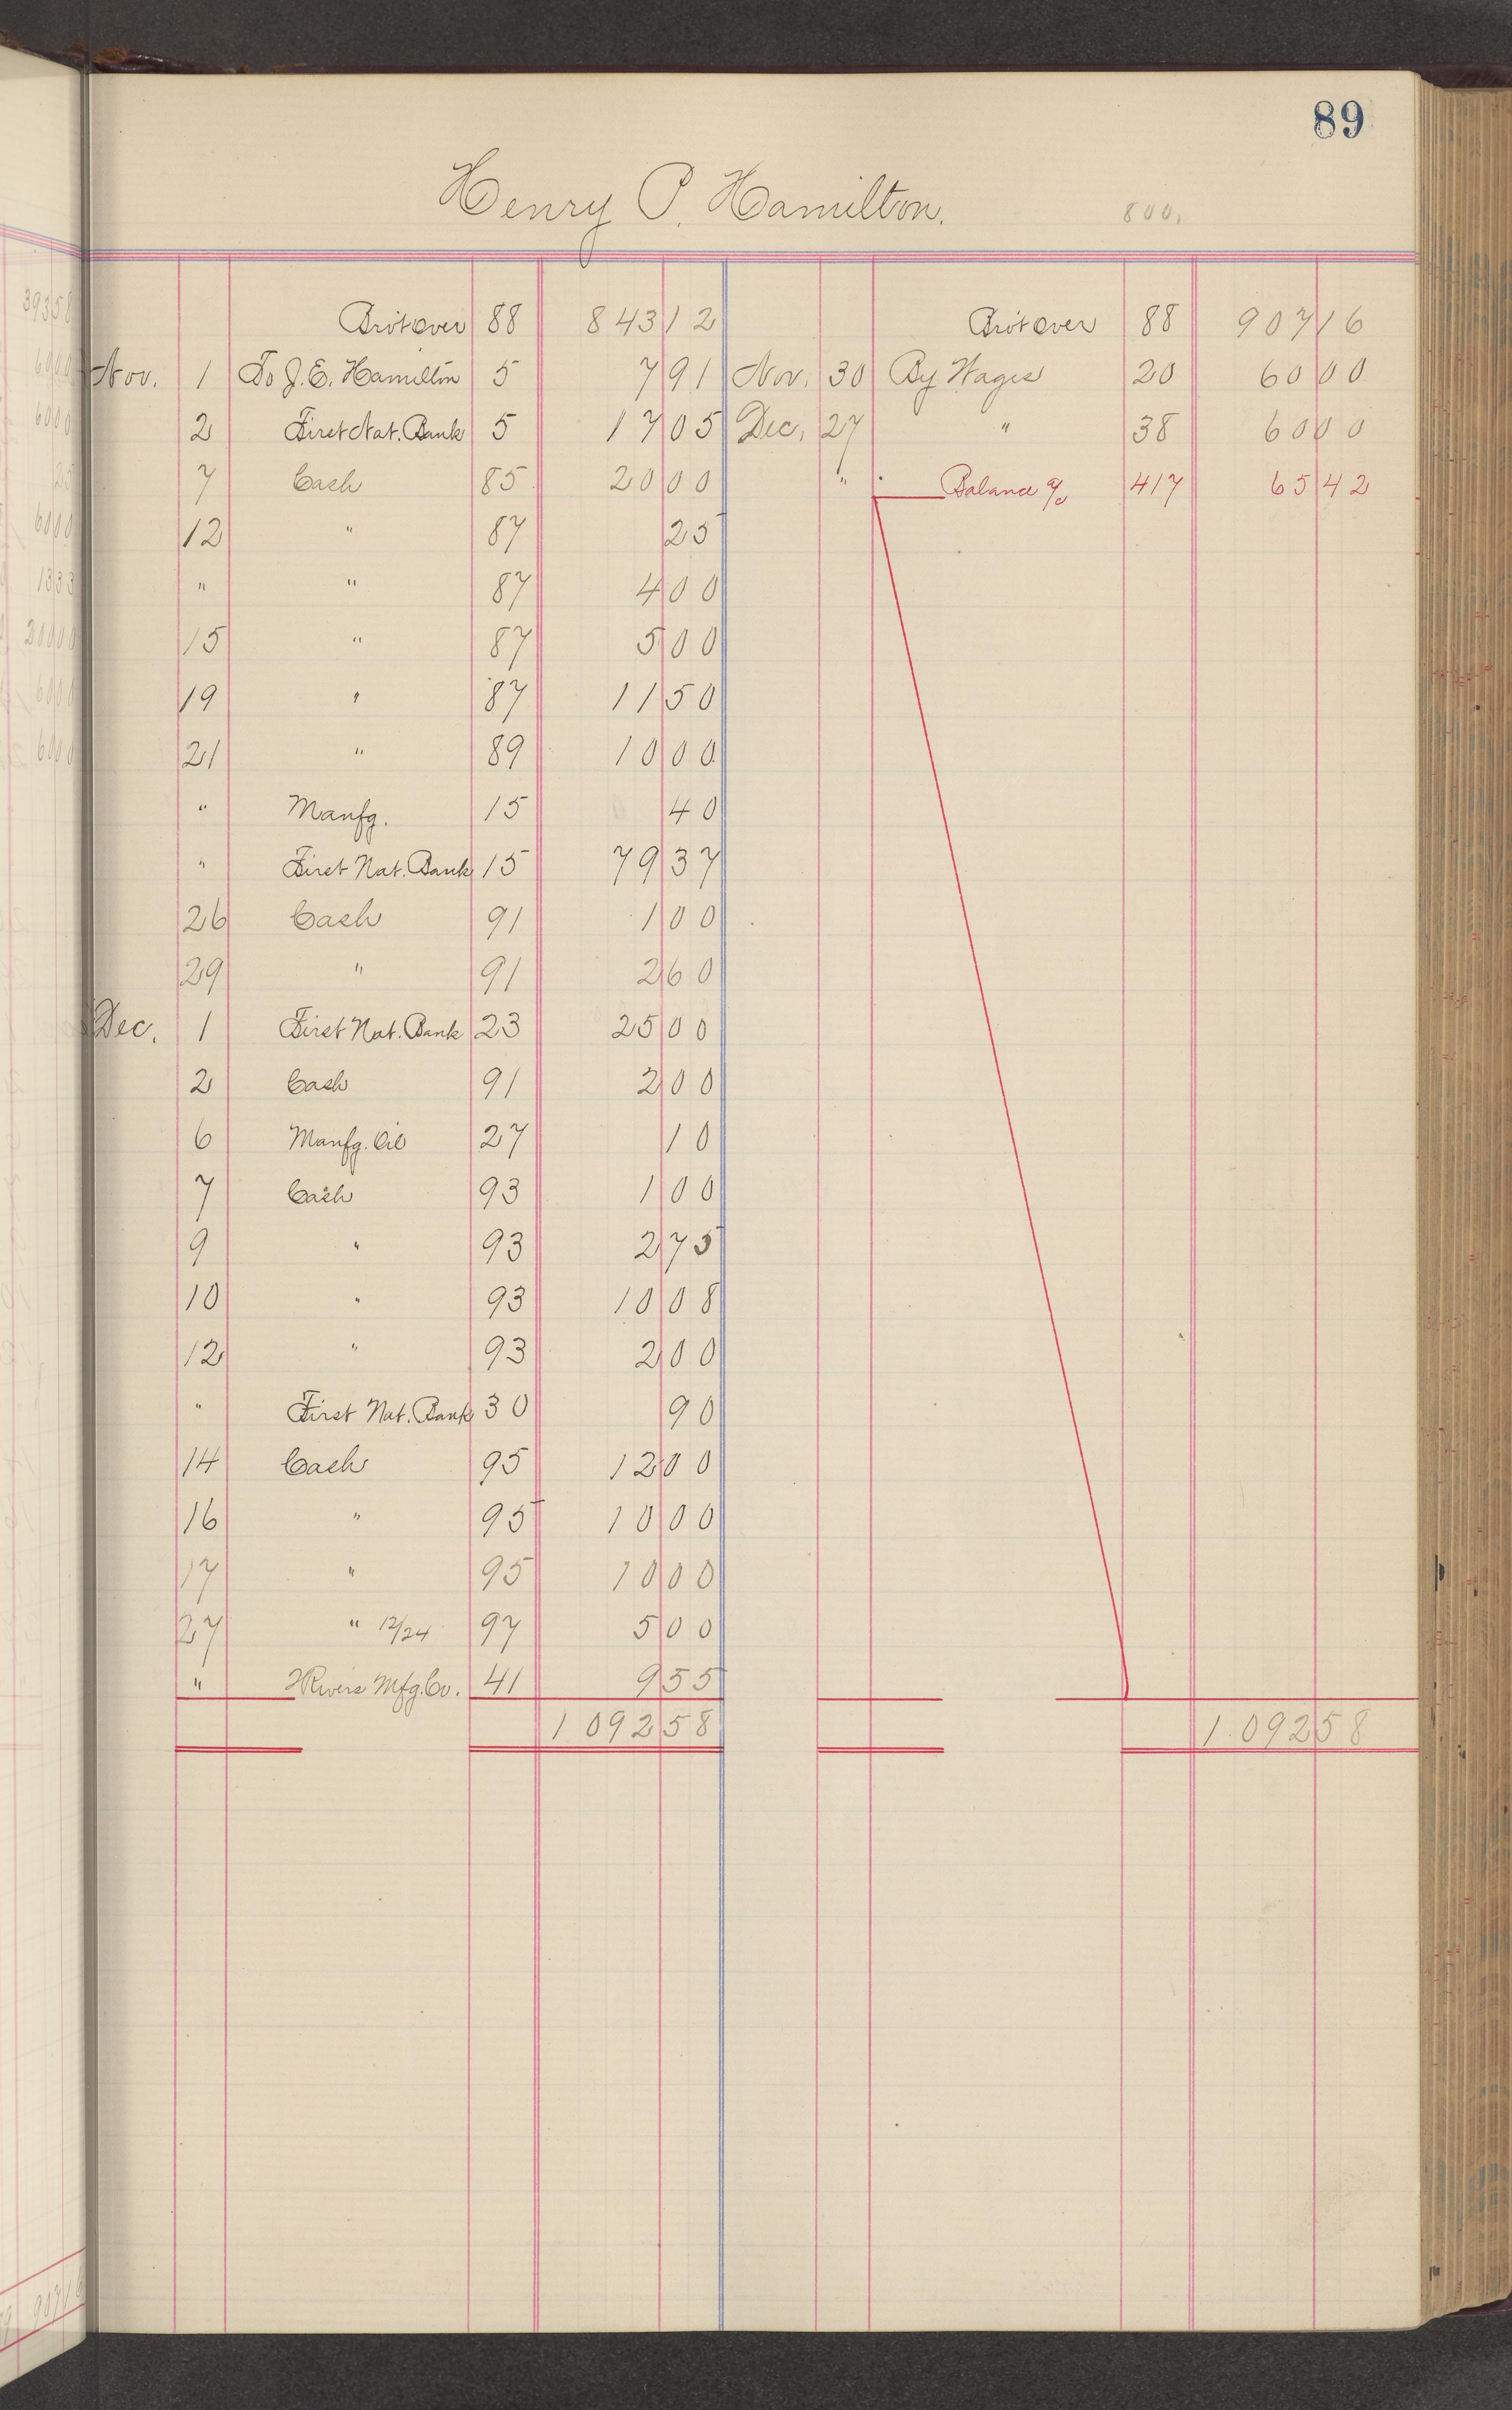 89
Henry P. Hamilton. 800.
Bro't over 88 843 12 Bro't over 88 907 16
Nov. 1 To J. E. Hamilton 5 7 91 Nov. 30 By Wages 20 60 00
2 First Nat. Bank 5 17 05 Dec. 27 " 38 60 00
7 Cash 85 20 00 " Balance a/c 417 65 42
12 " 87 25
" " 87 4 00
15 " 87 5 00
19 " 87 11 50
21 " 89 10 00
" Manfg. 15 40
" First Nat. Bank 15 79 37
26 Cash 91 1 00
29 " 91 2 60
Dec. 1 First Nat. Bank 23 25 00
2 Cash 91 2 00
6 Manfg. Oil 27 10
7 Cash 93 1 00
9 " 93 2 75
10 " 93 10 08
12 " 93 2 00
" First Nat. Bank 30 90
14 Cash 95 12 00
16 " 95 10 00
17 " 95 10 00
27 " 12/24 97 5 00
" 2Rivers Mfg. Co. 41 9 55
1 092 58 1 092 58